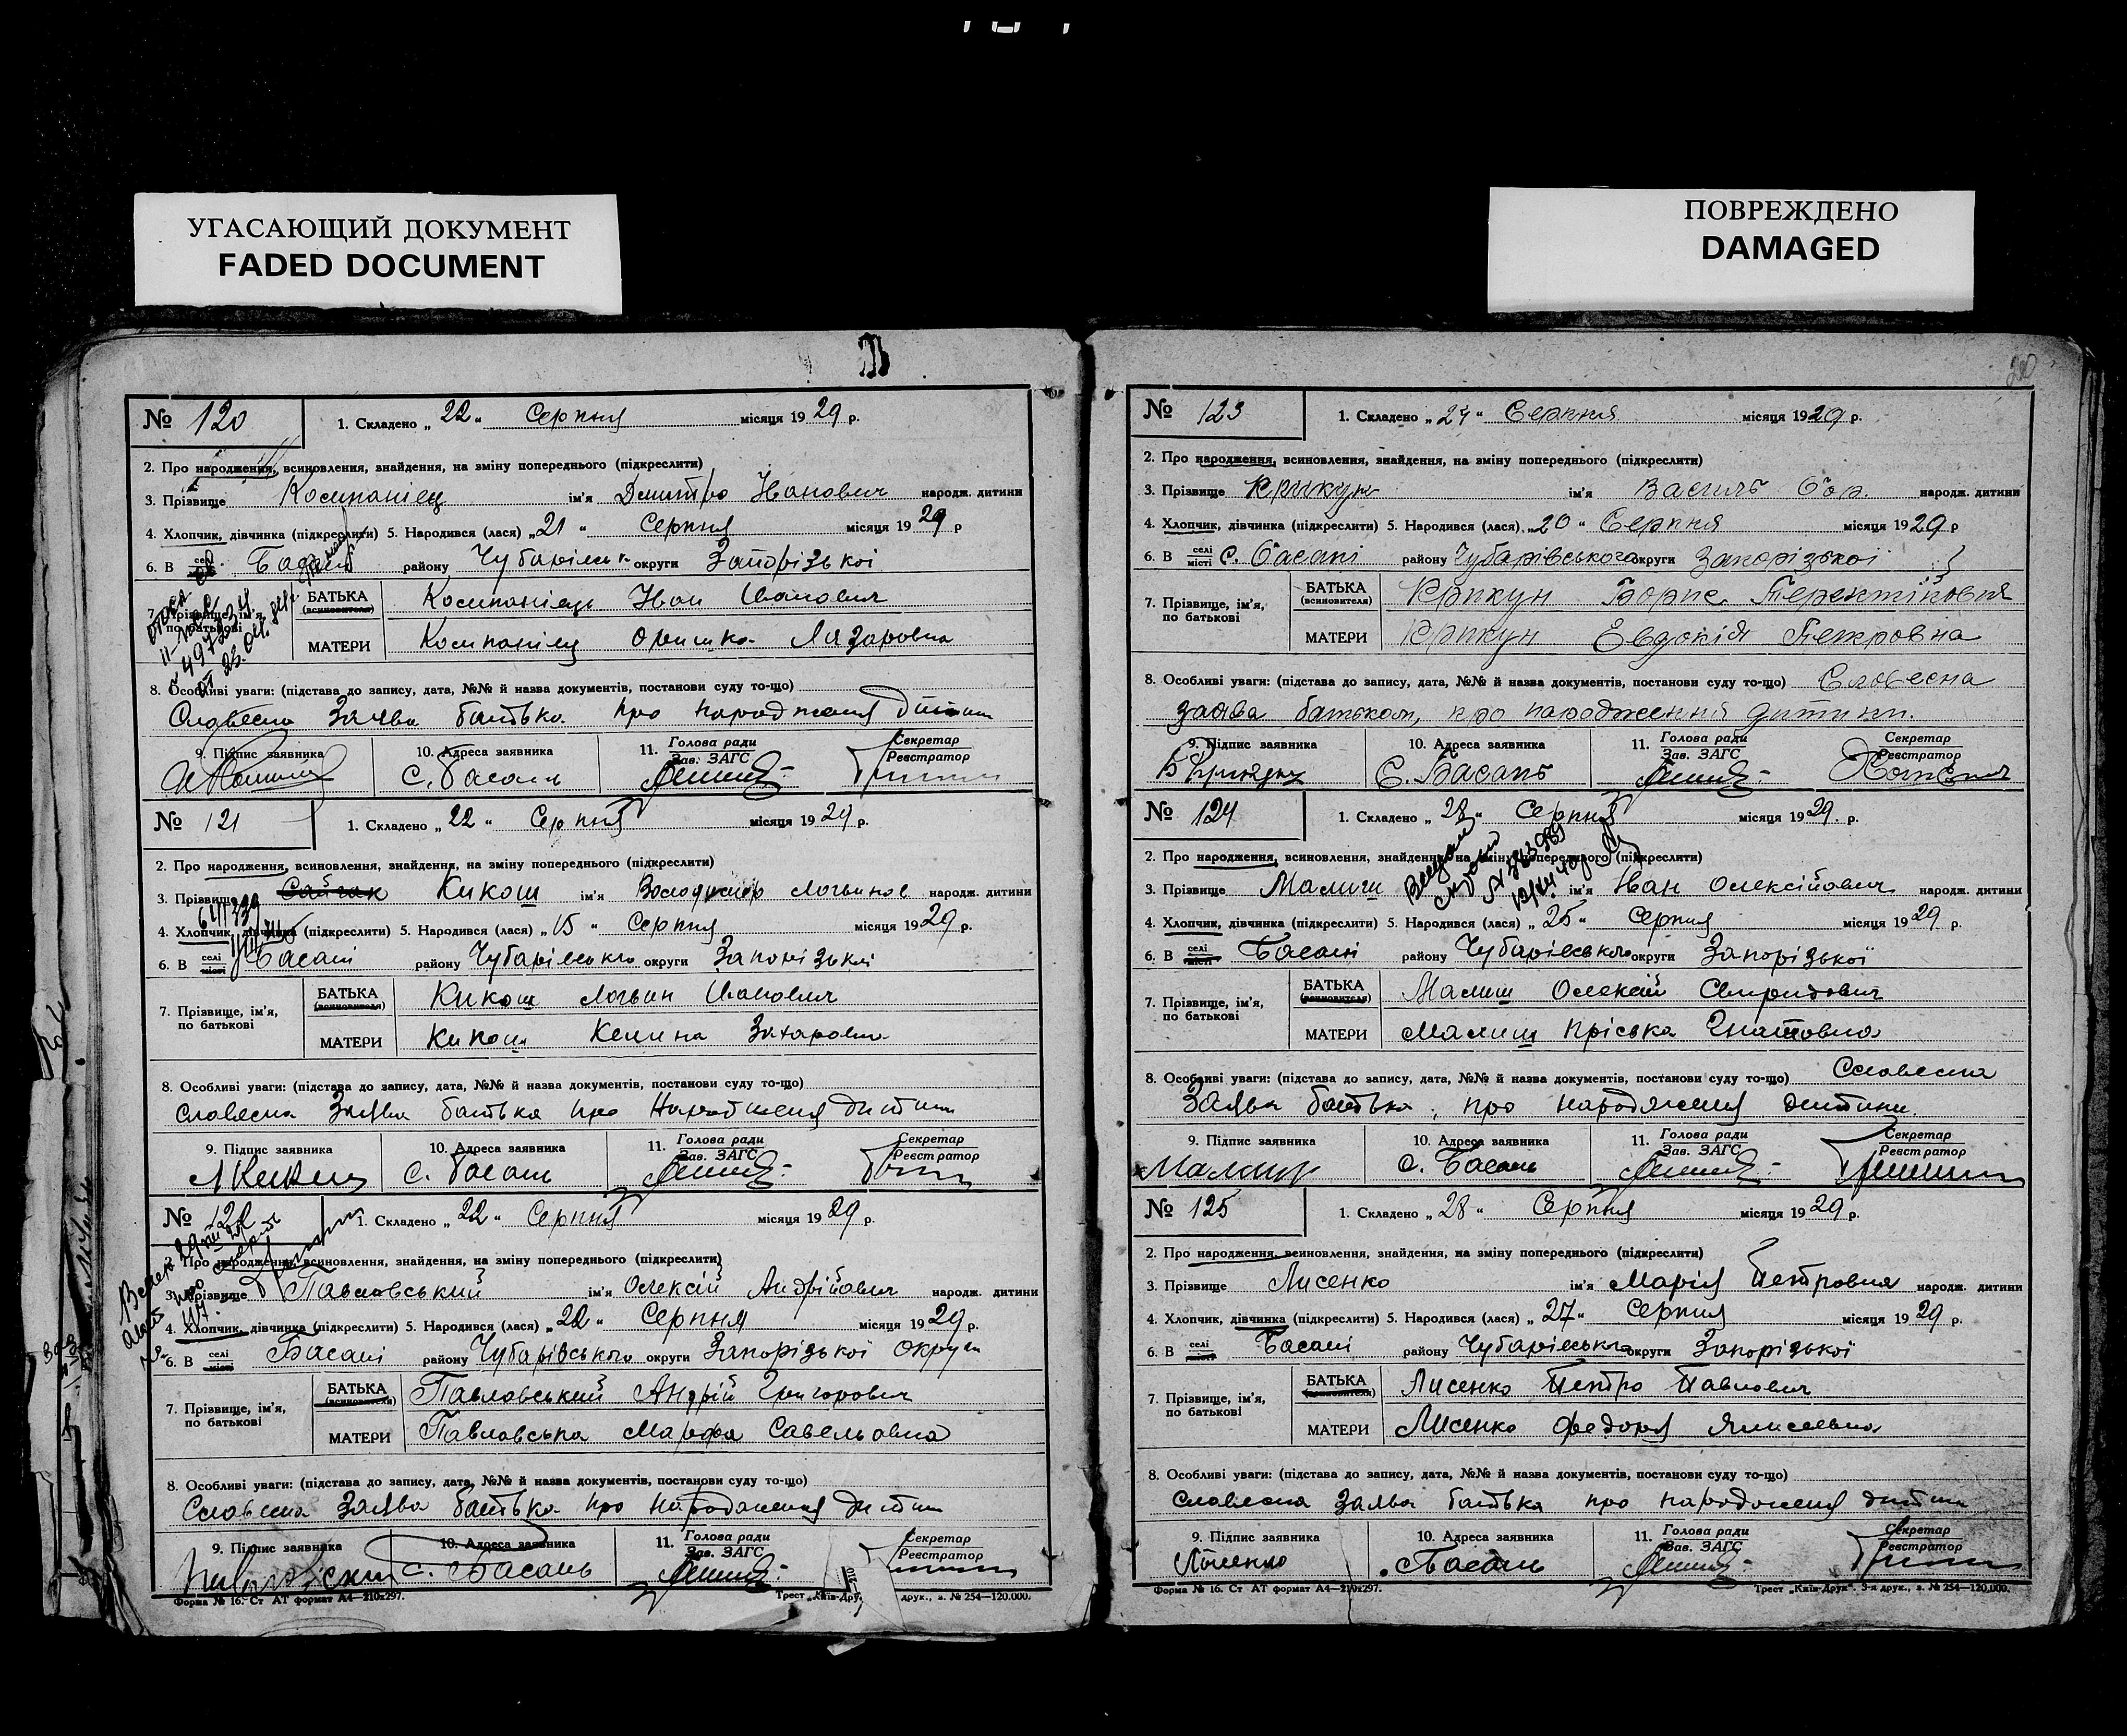 УГАСАЮЩИЙ ДОКУМЕНТ
FADED DOCUMENT
ПОВРЕЖДЕНО
DAMAGED
№ 120 1. Складено „22" Серпня місяця 1929 р.
2. Про народження, всиновлення, знайдення, на зміну попереднього (підкреслити)
3. Прізвище Компаніец ім'я Дмитро Іванович народж. дитини
4. Хлопчик, дівчинка (підкреслити) 5. Народився (лася) „21" Серпня місяця 1929 р
6. В селі місті Басані району Чубарівськ округи Запорізької
7. Прізвище, ім'я, по батькові
БАТЬКА (всиновителя) Компаніець Іван Іванович
МАТЕРИ Компаніец Оришка Лазаровна
8. Особливі уваги: (підстава до запису, дата, №№ й назва документів, постанови суду то-що)
Словесна Заява батька про народження дитини
9. Підпис заявника 10. Адреса заявника 11. Голова ради Зав. ЗАГС Секретар Реєстратор
С. Басань
№ 121 1. Складено „22" Серпня місяця 1929 р.
2. Про народження, всиновлення, знайдення, на зміну попереднього (підкреслити)
3. Прізвище Кикош ім'я Володимир Логвинов народж. дитини
4. Хлопчик, дівчинка (підкреслити) 5. Народився (лася) „15" Серпня місяця 1929 р.
6. В селі місті Басані району Чубарівського округи Запорізької
7. Прізвище, ім'я, по батькові
БАТЬКА (всиновителя) Кикош Логвин Іванович
МАТЕРИ Кикош Келина Захаровна
8. Особливі уваги: (підстава до запису, дата, №№ й назва документів, постанови суду то-що)
Словесна Заява батька про Народження дитини
9. Підпис заявника 10. Адреса заявника 11. Голова ради Зав. ЗАГС Секретар Реєстратор
С. Басань
№ 122 1. Складено „22" Серпня місяця 1929 р.
2. Про народження, всиновлення, знайдення, на зміну попереднього (підкреслити)
3. Прізвище Павловський ім'я Олексій Андрійович народж. дитини
4. Хлопчик, дівчинка (підкреслити) 5. Народився (лася) „22" Серпня місяця 1929 р.
6. В селі місті Басані району Чубарівського округи Запорізької Округи
7. Прізвище, ім'я, по батькові
БАТЬКА (всиновителя) Павловський Андрій Григорович
МАТЕРИ Павловська Марфа Савельовна
8. Особливі уваги: (підстава до запису, дата, №№ й назва документів, постанови суду то-що)
Словесна Заява батька про народження дитини
9. Підпис заявника 10. Адреса заявника 11. Голова ради Зав. ЗАГС Секретар Реєстратор
С. Басань
Форма № 16. Ст АТ формат А4—210х297. Трест „Київ-Дру друк., з. № 254—120.000.
№ 123 1. Складено „24" Серпня місяця 1929 р.
2. Про народження, всиновлення, знайдення, на зміну попереднього (підкреслити)
3. Прізвище Крикун ім'я Василь Бор. народж. дитини
4. Хлопчик, дівчинка (підкреслити) 5. Народився (лася) „20" Серпня місяця 1929 р
6. В селі місті С. Басані району Чубарівського округи Запорізької
7. Прізвище, ім'я, по батькові
БАТЬКА (всиновителя) Крикун Борис Терентійович
МАТЕРИ Крикун Евдокія Петровна
8. Особливі уваги: (підстава до запису, дата, №№ й назва документів, постанови суду то-що) Словесна
заява батьком, про народження дитини.
9. Підпис заявника 10. Адреса заявника 11. Голова ради Зав. ЗАГС Секретар Реєстратор
Б Крикун С. Басань
№ 124 1. Складено „28" Серпня місяця 1929. р.
2. Про народження, всиновлення, знайдення, на зміну попереднього (підкреслити)
3. Прізвище Малиш ім'я Іван Олексійович народж. дитини
4. Хлопчик, дівчинка (підкреслити) 5. Народився (лася) „25" Серпня місяця 1929 р.
6. В селі місті Басані району Чубарівського округи Запорізької
7. Прізвище, ім'я, по батькові
БАТЬКА (всиновителя) Малиш Олексій Свиридович
МАТЕРИ Малиш Пріська Гнатовна
8. Особливі уваги: (підстава до запису, дата, №№ й назва документів, постанови суду то-що) Словесна
Заява батька, про народження дитини.
9. Підпис заявника 10. Адреса заявника 11. Голова ради Зав. ЗАГС Секретар Реєстратор
Малиш с. Басань
№ 125 1. Складено „28" Серпня місяця 1929 р.
2. Про народження, всиновлення, знайдення, на зміну попереднього (підкреслити)
3. Прізвище Лисенко ім'я Марія Петровна народж. дитини
4. Хлопчик, дівчинка (підкреслити) 5. Народився (лася) „27" Серпня місяця 1929 р.
6. В селі місті Басані району Чубарівського округи Запорізької
7. Прізвище, ім'я, по батькові
БАТЬКА (всиновителя) Лисенко Петро Павлович
МАТЕРИ Лисенко Федора
8. Особливі уваги: (підстава до запису, дата, №№ й назва документів, постанови суду то-що)
Словесна Заява батька про народження дитини
9. Підпис заявника 10. Адреса заявника 11. Голова ради Зав. ЗАГС Секретар Реєстратор
с. Басань
Форма № 16. Ст АТ формат А4—210х297. Трест „Київ-Друк". 3-я друк., з. № 254—120.000.